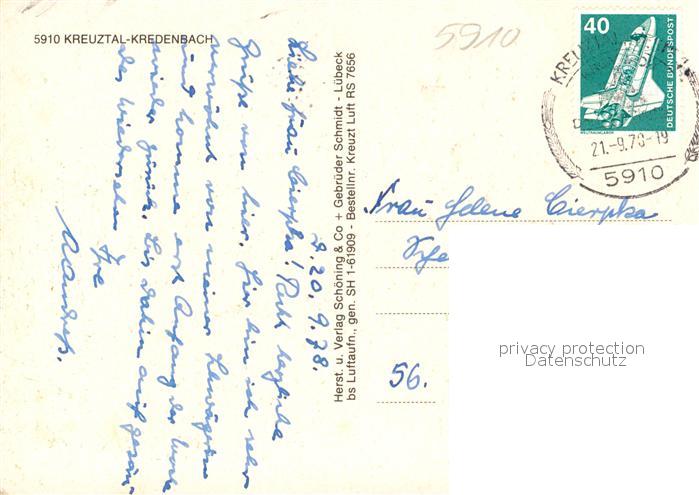 5910 KREUZTAL-KREDENBACH
d. 20. 9. 78.
Liebe Frau Cierpka! Recht herzliche
Grüße von hier. Hier bin ich sehr
verwöhnt von meiner Schwägerin
und komme erst Anfang der Woche
wieder zurück. Bis dahin auf gesun-
des Wiedersehen Ihre
Herst. u. Verlag Schöning & Co + Gebrüder Schmidt - Lübeck
bs Luftaufn., gen. SH 1-61909 - Bestellnr. Kreuzt Luft RS 7656
5910
40
DEUTSCHE BUNDESPOST
WELTRAUMLABOR
21.-9.78-19
5910
Frau Helene Cierpka
56.
privacy protection
Datenschutz